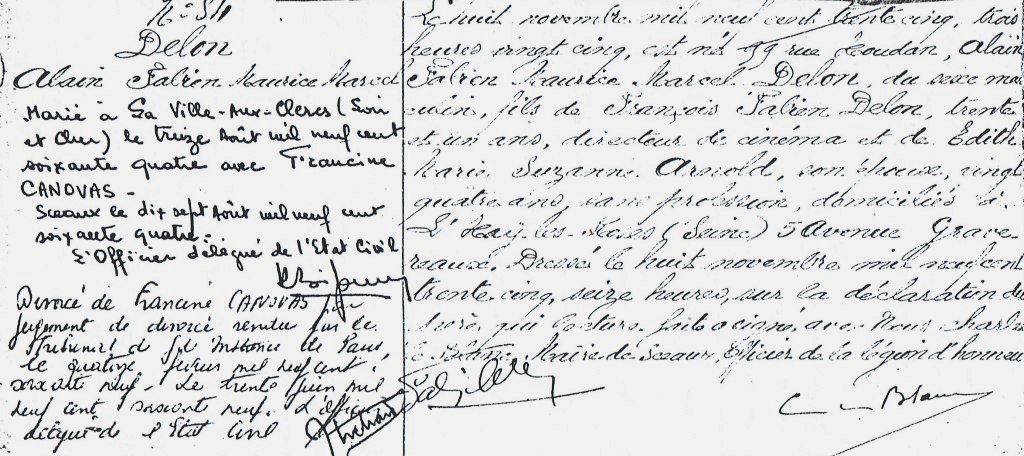 Delon
Alain Fabien Maurice Marcel
Marié à La Ville-Aux-Clercs (Loir
et Cher) le treize Août mil neuf cent
soixante quatre avec Francine
CANOVAS -
Sceaux le dix sept Août mil neuf cent
soixante quatre -
L'Officier délégué de l'Etat Civil
Divorcé de Francine CANOVAS
jugement de divorce rendu par le
Tribunal de Instance de Paris,
le quatorze février mil neuf cent
soixante neuf. Le trente juin mil
neuf cent soixante neuf. L'officier
délégué de l'Etat Civil
Le huit novembre mil neuf cent trente cinq, trois
heures vingt cinq, est né 99 rue Houdan, Alain
Fabien Maurice Marcel Delon, du sexe mas
culin, fils de François Fabien Delon, trente
et un ans, directeur de cinéma et de Edith
Marie Suzanne Arnold, son épouse, vingt
quatre ans, sans profession, domiciliés à
L'Haÿ-les-Roses (Seine) 5 Avenue Grave
reaux. Dressé le huit novembre mil neuf cent
trente cinq, seize heures, sur la déclaration du
père, qui lecture faite a signé avec Nous Charles
Maire de Sceaux, Officier de la légion d'honneur